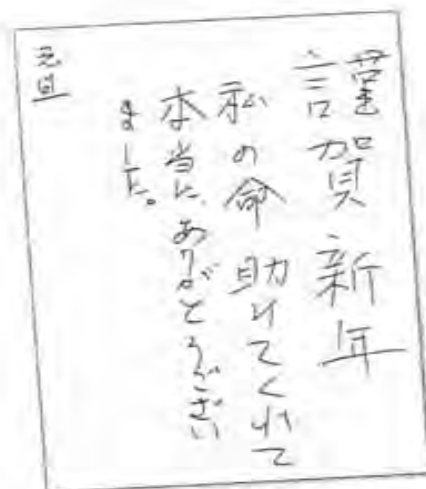 謹賀新年
私の命助けてくれて
本当に、ありがとうござい
ました。
元旦